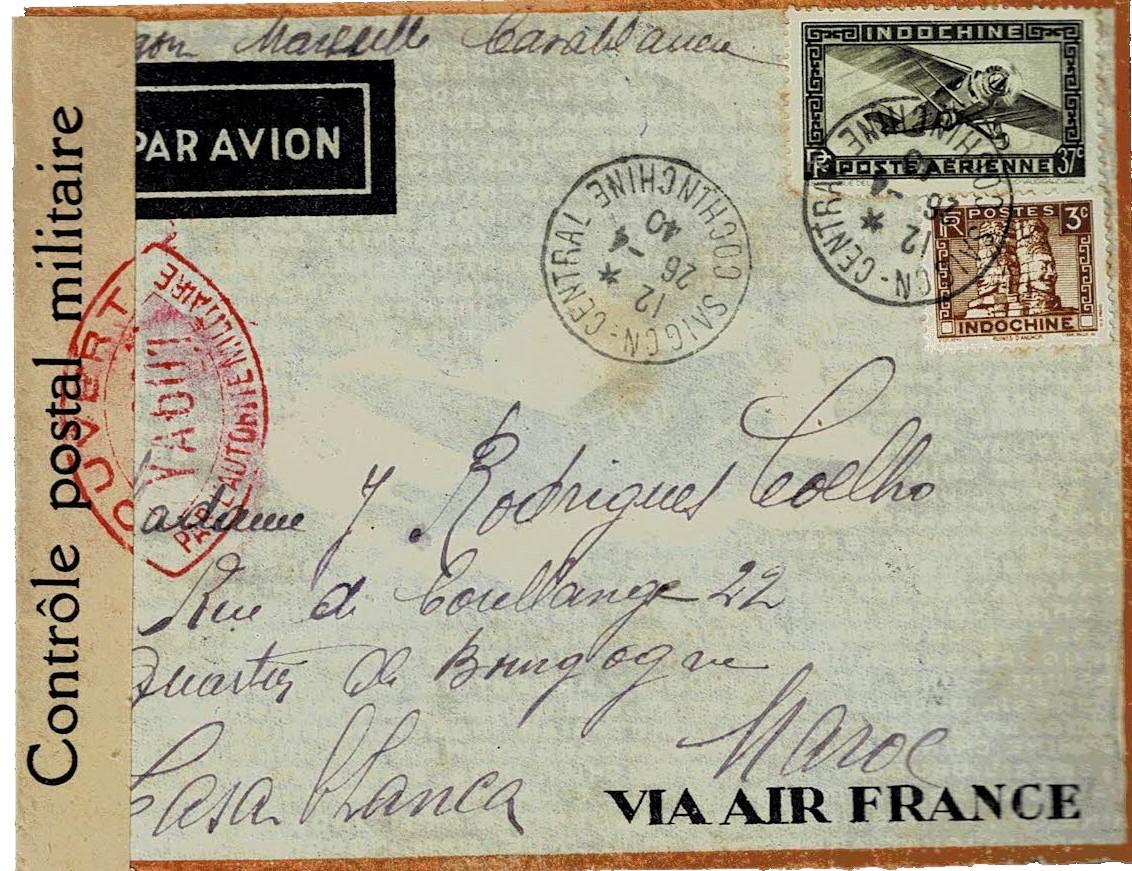 Marseille Casablanca
PAR AVION
INDOCHINE
POSTE AÉRIENNE 37c
RF POSTES 3c
INDOCHINE
SAIGON-CENTRAL COCHINCHINE
12
26 -4
40
SAIGON-CENTRAL COCHINCHINE
12
26 -4
Contrôle postal militaire
OUVERT
PAR L'AUTORITÉ MILITAIRE
J Rodrigues Coelho
Rue de Coullange 22
Quartier de Bourgogne
Casa blanca
Maroc
VIA AIR FRANCE